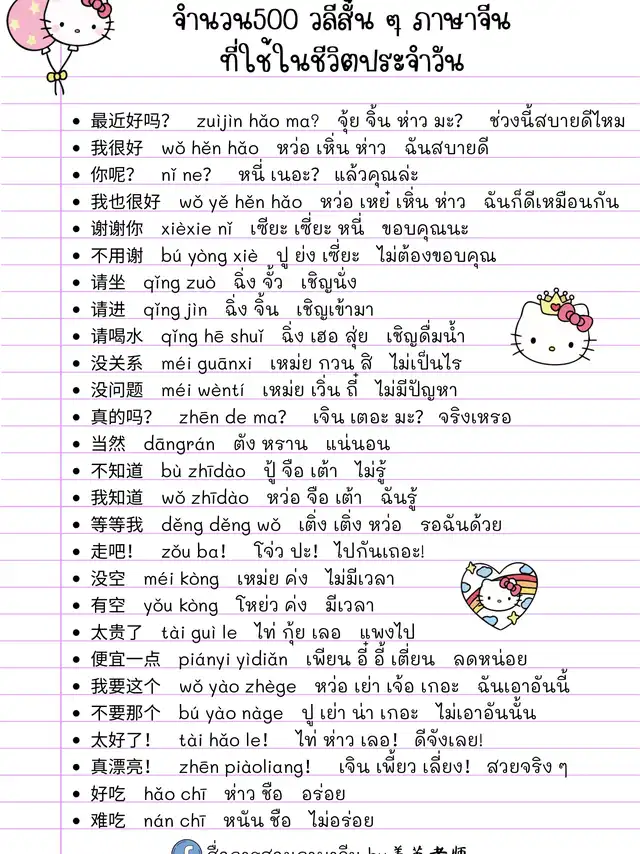 จำนวน500 วลีสั้น ๆ ภาษาจีน
ที่ใช้ในชีวิตประจำวัน
• 最近好吗？ zuìjìn hǎo ma? จุ้ย จิ้น ห่าว มะ? ช่วงนี้สบายดีไหม
• 我很好 wǒ hěn hǎo หว่อ เหิ่น ห่าว ฉันสบายดี
• 你呢？ nǐ ne? หนี่ เนอะ? แล้วคุณล่ะ
• 我也很好 wǒ yě hěn hǎo หว่อ เหย่ เหิ่น ห่าว ฉันก็ดีเหมือนกัน
• 谢谢你 xièxie nǐ เซี่ยะ เซี่ยะ หนี่ ขอบคุณนะ
• 不用谢 bú yòng xiè ปู ย่ง เซี่ยะ ไม่ต้องขอบคุณ
• 请坐 qǐng zuò ฉิ่ง จั้ว เชิญนั่ง
• 请进 qǐng jìn ฉิ่ง จิ้น เชิญเข้ามา
• 请喝水 qǐng hē shuǐ ฉิ่ง เฮอ สุ่ย เชิญดื่มน้ำ
• 没关系 méi guānxi เหม่ย กวน สิ ไม่เป็นไร
• 没问题 méi wèntí เหม่ย เวิ่น ถี๋ ไม่มีปัญหา
• 真的吗？ zhēn de ma? เจิน เตอะ มะ? จริงเหรอ
• 当然 dāngrán ตัง หราน แน่นอน
• 不知道 bù zhīdào ปู้ จือ เต้า ไม่รู้
• 我知道 wǒ zhīdào หว่อ จือ เต้า ฉันรู้
• 等等我 děng děng wǒ เติ่ง เติ่ง หว่อ รอฉันด้วย
• 走吧！ zǒu ba! โจ่ว ปะ! ไปกันเถอะ!
• 没空 méi kòng เหม่ย ค่ง ไม่มีเวลา
• 有空 yǒu kòng โหย่ว ค่ง มีเวลา
• 太贵了 tài guì le ไท่ กุ้ย เลอ แพงไป
• 便宜一点 piányi yìdiǎn เพียน อี๋ อี้ เตี่ยน ลดหน่อย
• 我要这个 wǒ yào zhège หว่อ เย่า เจ้อ เกอะ ฉันเอาอันนี้
• 不要那个 bú yào nàge ปู เย่า น่า เกอะ ไม่เอาอันนั้น
• 太好了！ tài hǎo le! ไท่ ห่าว เลอ! ดีจังเลย!
• 真漂亮！ zhēn piàoliang! เจิน เพี้ยว เลี่ยง! สวยจริง ๆ
• 好吃 hǎo chī ห่าว ชือ อร่อย
• 难吃 nán chī หนัน ชือ ไม่อร่อย